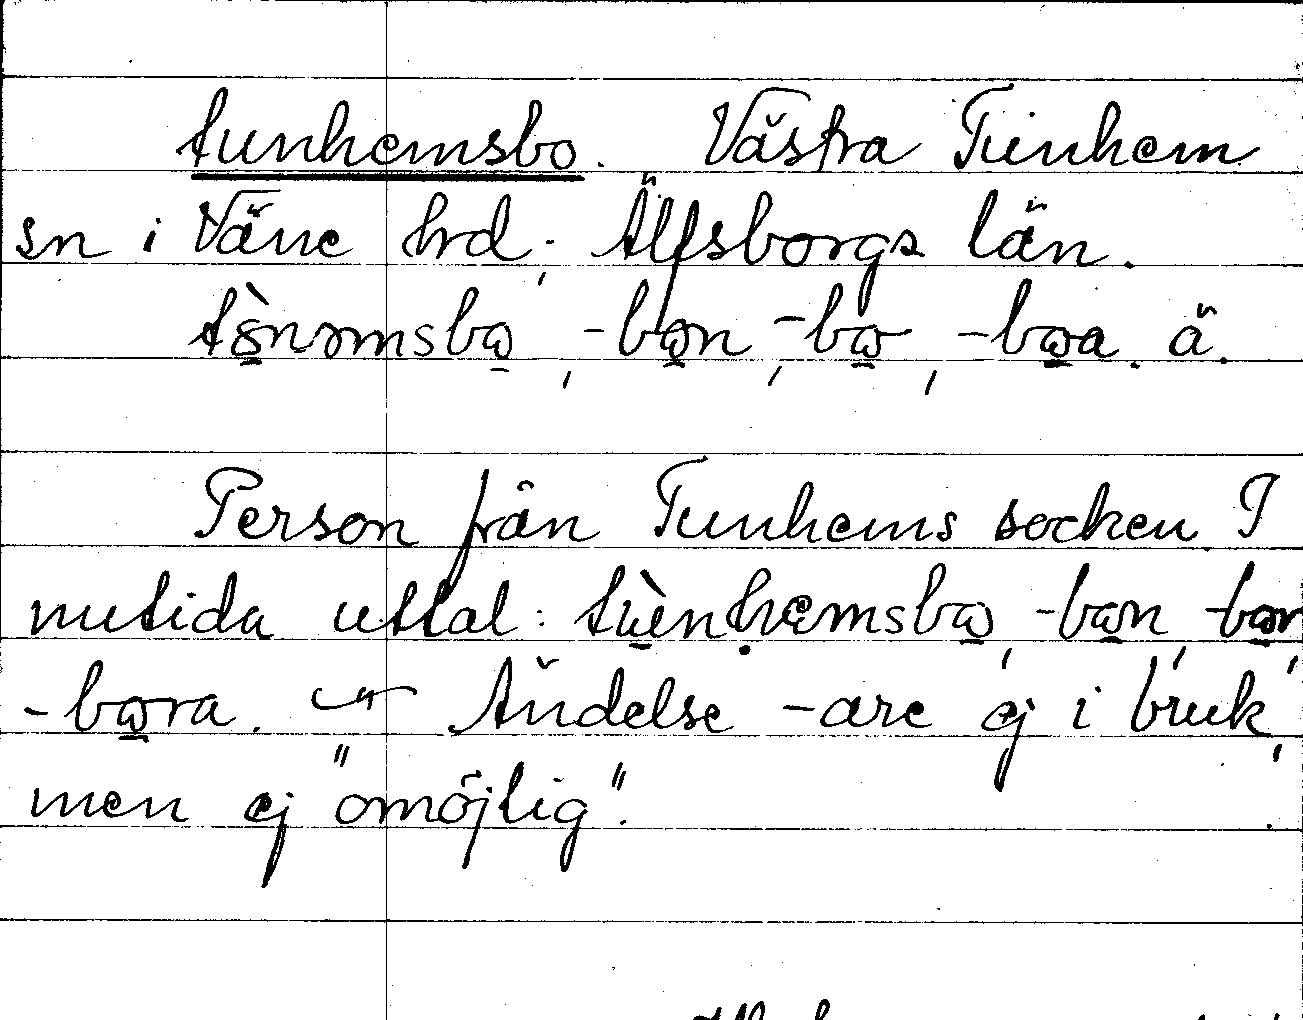 tunhemsbo. Västra Tunhem
sn i Väne hrd; Älfsborgs län.
tò̱nəmsbω̱, -bω̱n, -bω̱, -bω̱a. ä.
Person från Tunhems socken. I
nutida uttal: tùnhemsbω̱, -bω̱n, -bω̱r,
-bω̱ra. Ändelse -are ej i bruk,
men ej "omöjlig".